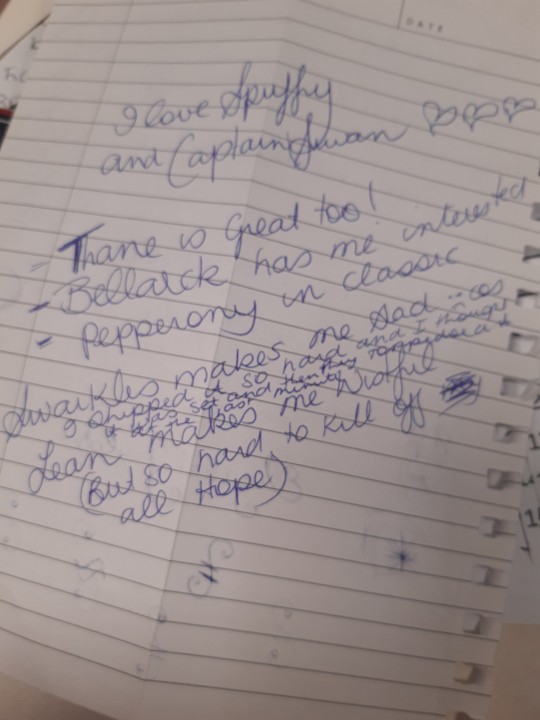 DATE
I love Spuffy
and CaptainSwan
- Thane is Great too!
- Bellarck has me interested
- Pepperony in classic
Swarkles makes me sad :: cos
I shipped it so hard and I thought
it was set and then they torpedoed it
at the last minute
Jean makes me wistful
(But so hard to kill off
all Hope)